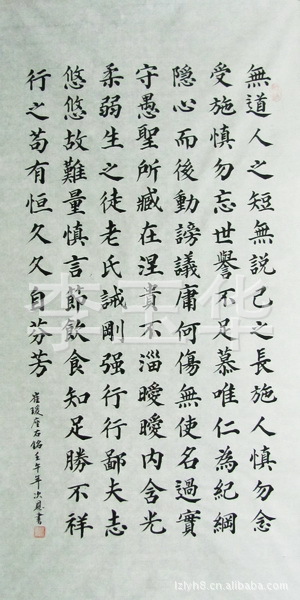 無道人之短無説己之長施人慎勿念
受施慎勿忘世譽不足慕唯仁為紀綱
隱心而後動謗議庸何傷無使名過實
守愚聖所臧在涅貴不淄曖曖内含光
柔弱生之徒老氏誡剛强行行鄙夫志
悠悠故難量慎言節飲食知足勝不祥
行之苟有恒久久自芬芳
崔瑗座右銘壬午年次恩書
李玉华
lzlyh8.cn.alibaba.com